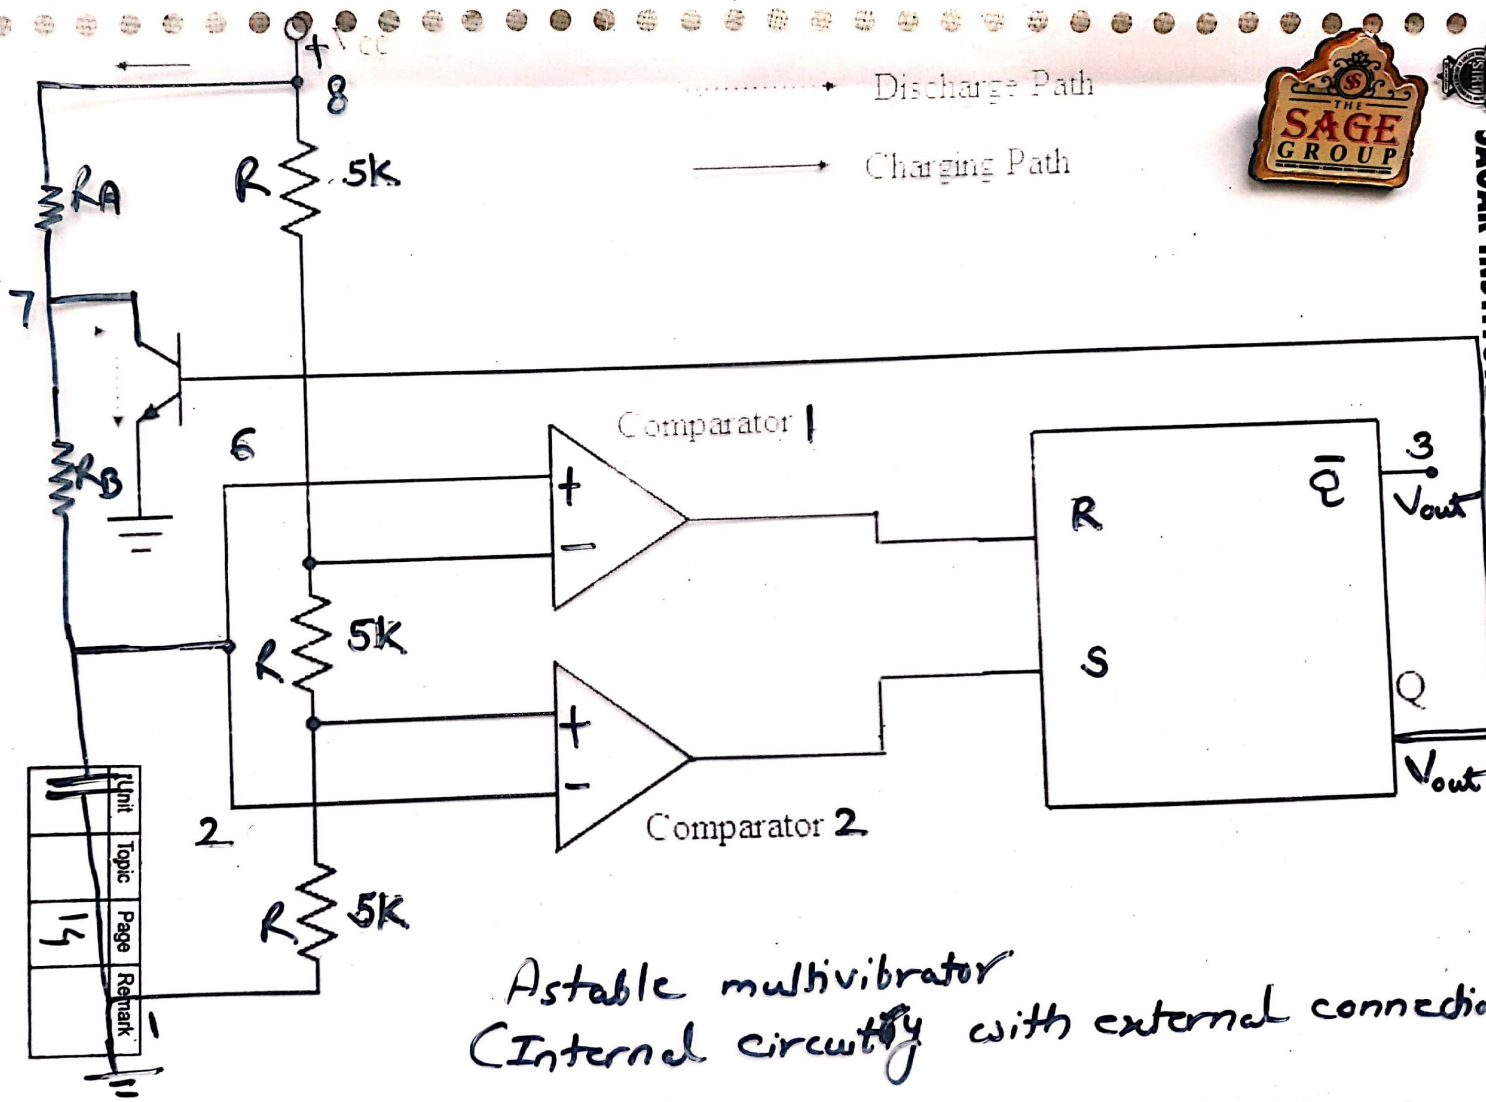 +Vcc
8
Discharge Path
Charging Path
THE
SAGE
GROUP
RA
R 5K
7
6
RB
Comparator 1
+
-
R
Q̅
3
Vout
R 5K
S
Q
Vout
+
-
2
Comparator 2
Unit
Topic
Page
Remark
14
R 5K
1
Astable multivibrator
(Internal circuitry with external connectio